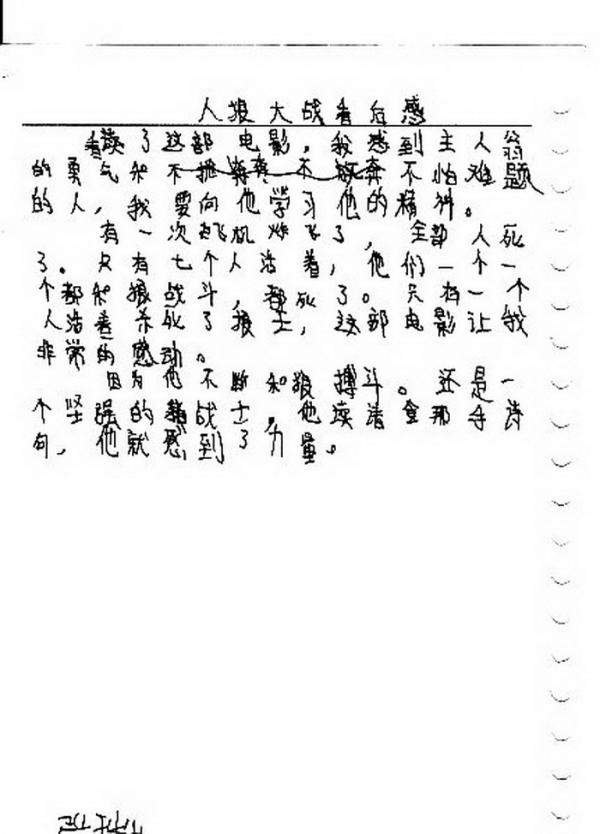 人狼大战看后感
看了这部电影。我感到主人翁
的勇气和不怕难题
的人，我要向他学习他的精神。
有一次飞机炸飞了，全部人死
了。只有七个人活着，他们一个一
个都和狼战斗，都死了。只有一个
人活着杀死了狼士，这部电影让我
非常的感动。
因为他不断和狼搏斗。还是一
个坚强的战士，他读着拿那手诗
句，他就感到了力量。